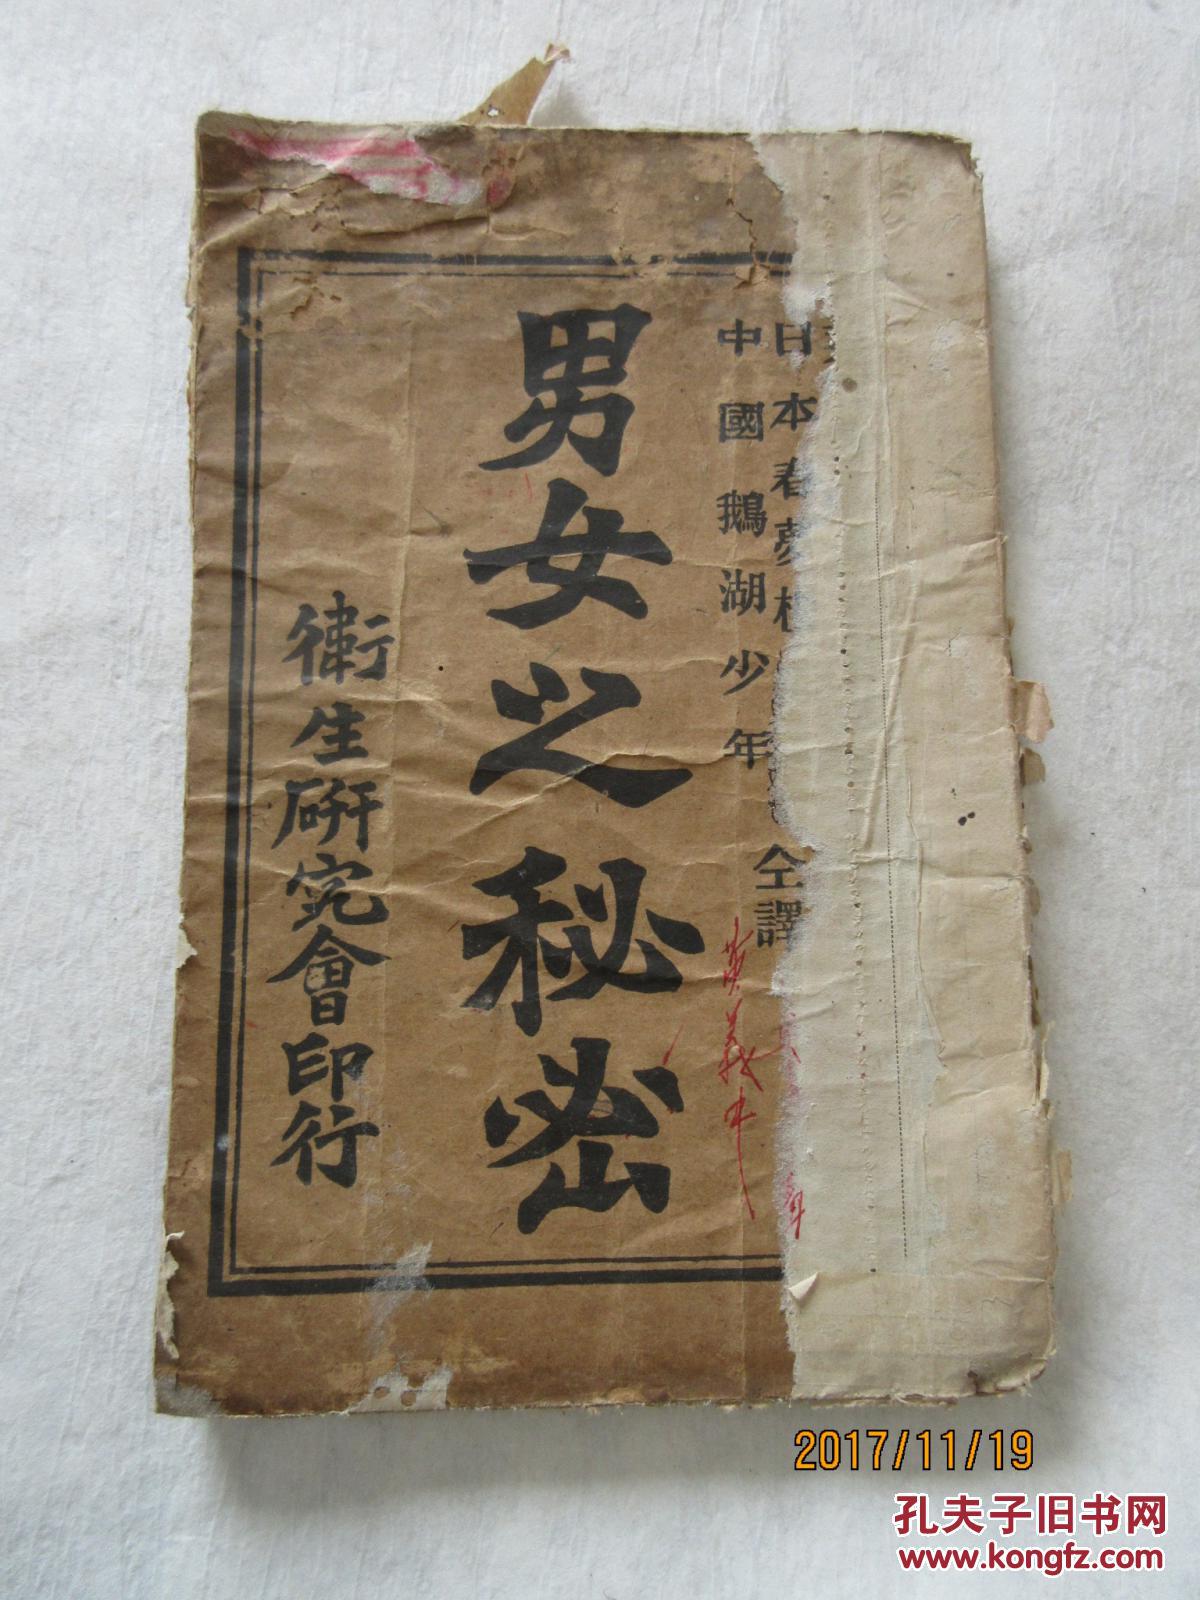 日本春夢
中國鵝湖少年
仝譯
男女之秘密
衛生研究會印行
黄義中
2017/11/19
孔夫子旧书网
www.kongfz.com